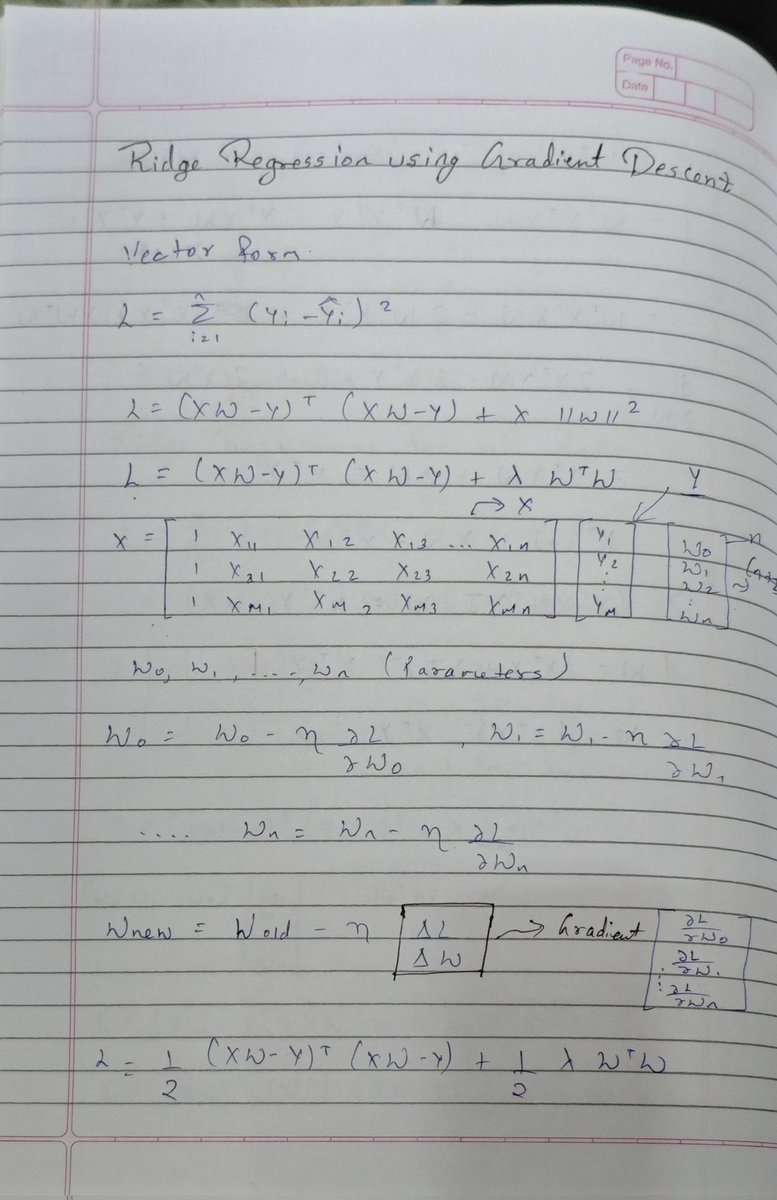 Page No.
Date
Ridge Regression using Gradient Descent
Vector form.
L = n Σ i=1 (Yi - Ŷi)²
L = (XW - Y)ᵀ (XW - Y) + λ ||W||²
L = (XW - Y)ᵀ (XW - Y) + λ WᵀW
→ X
Y
X = [ 1 X11 X12 X13 ... X1n ] [ Y1 ] [ W0 ] n
[ 1 X21 X22 X23 X2n ] [ Y2 ⋮ ] [ W1 W2 ⋮ ]
[ 1 XM1 XM2 XM3 XMn ] [ YM ] [ Wn ]
W0, W1, ...., Wn (Parameters)
W0 = W0 - η ∂L/∂W0 , W1 = W1 - η ∂L/∂W1
.... Wn = Wn - η ∂L/∂Wn
Wnew = Wold - η ΔL/ΔW → Gradient [ ∂L/∂W0 ∂L/∂W1 ⋮ ∂L/∂Wn ]
L = 1/2 (XW - Y)ᵀ (XW - Y) + 1/2 λ WᵀW